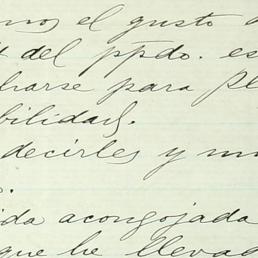 el gusto
del ppdo. es
harse para
bilidad.
decirles y mu
ida acongojada
que he lleva